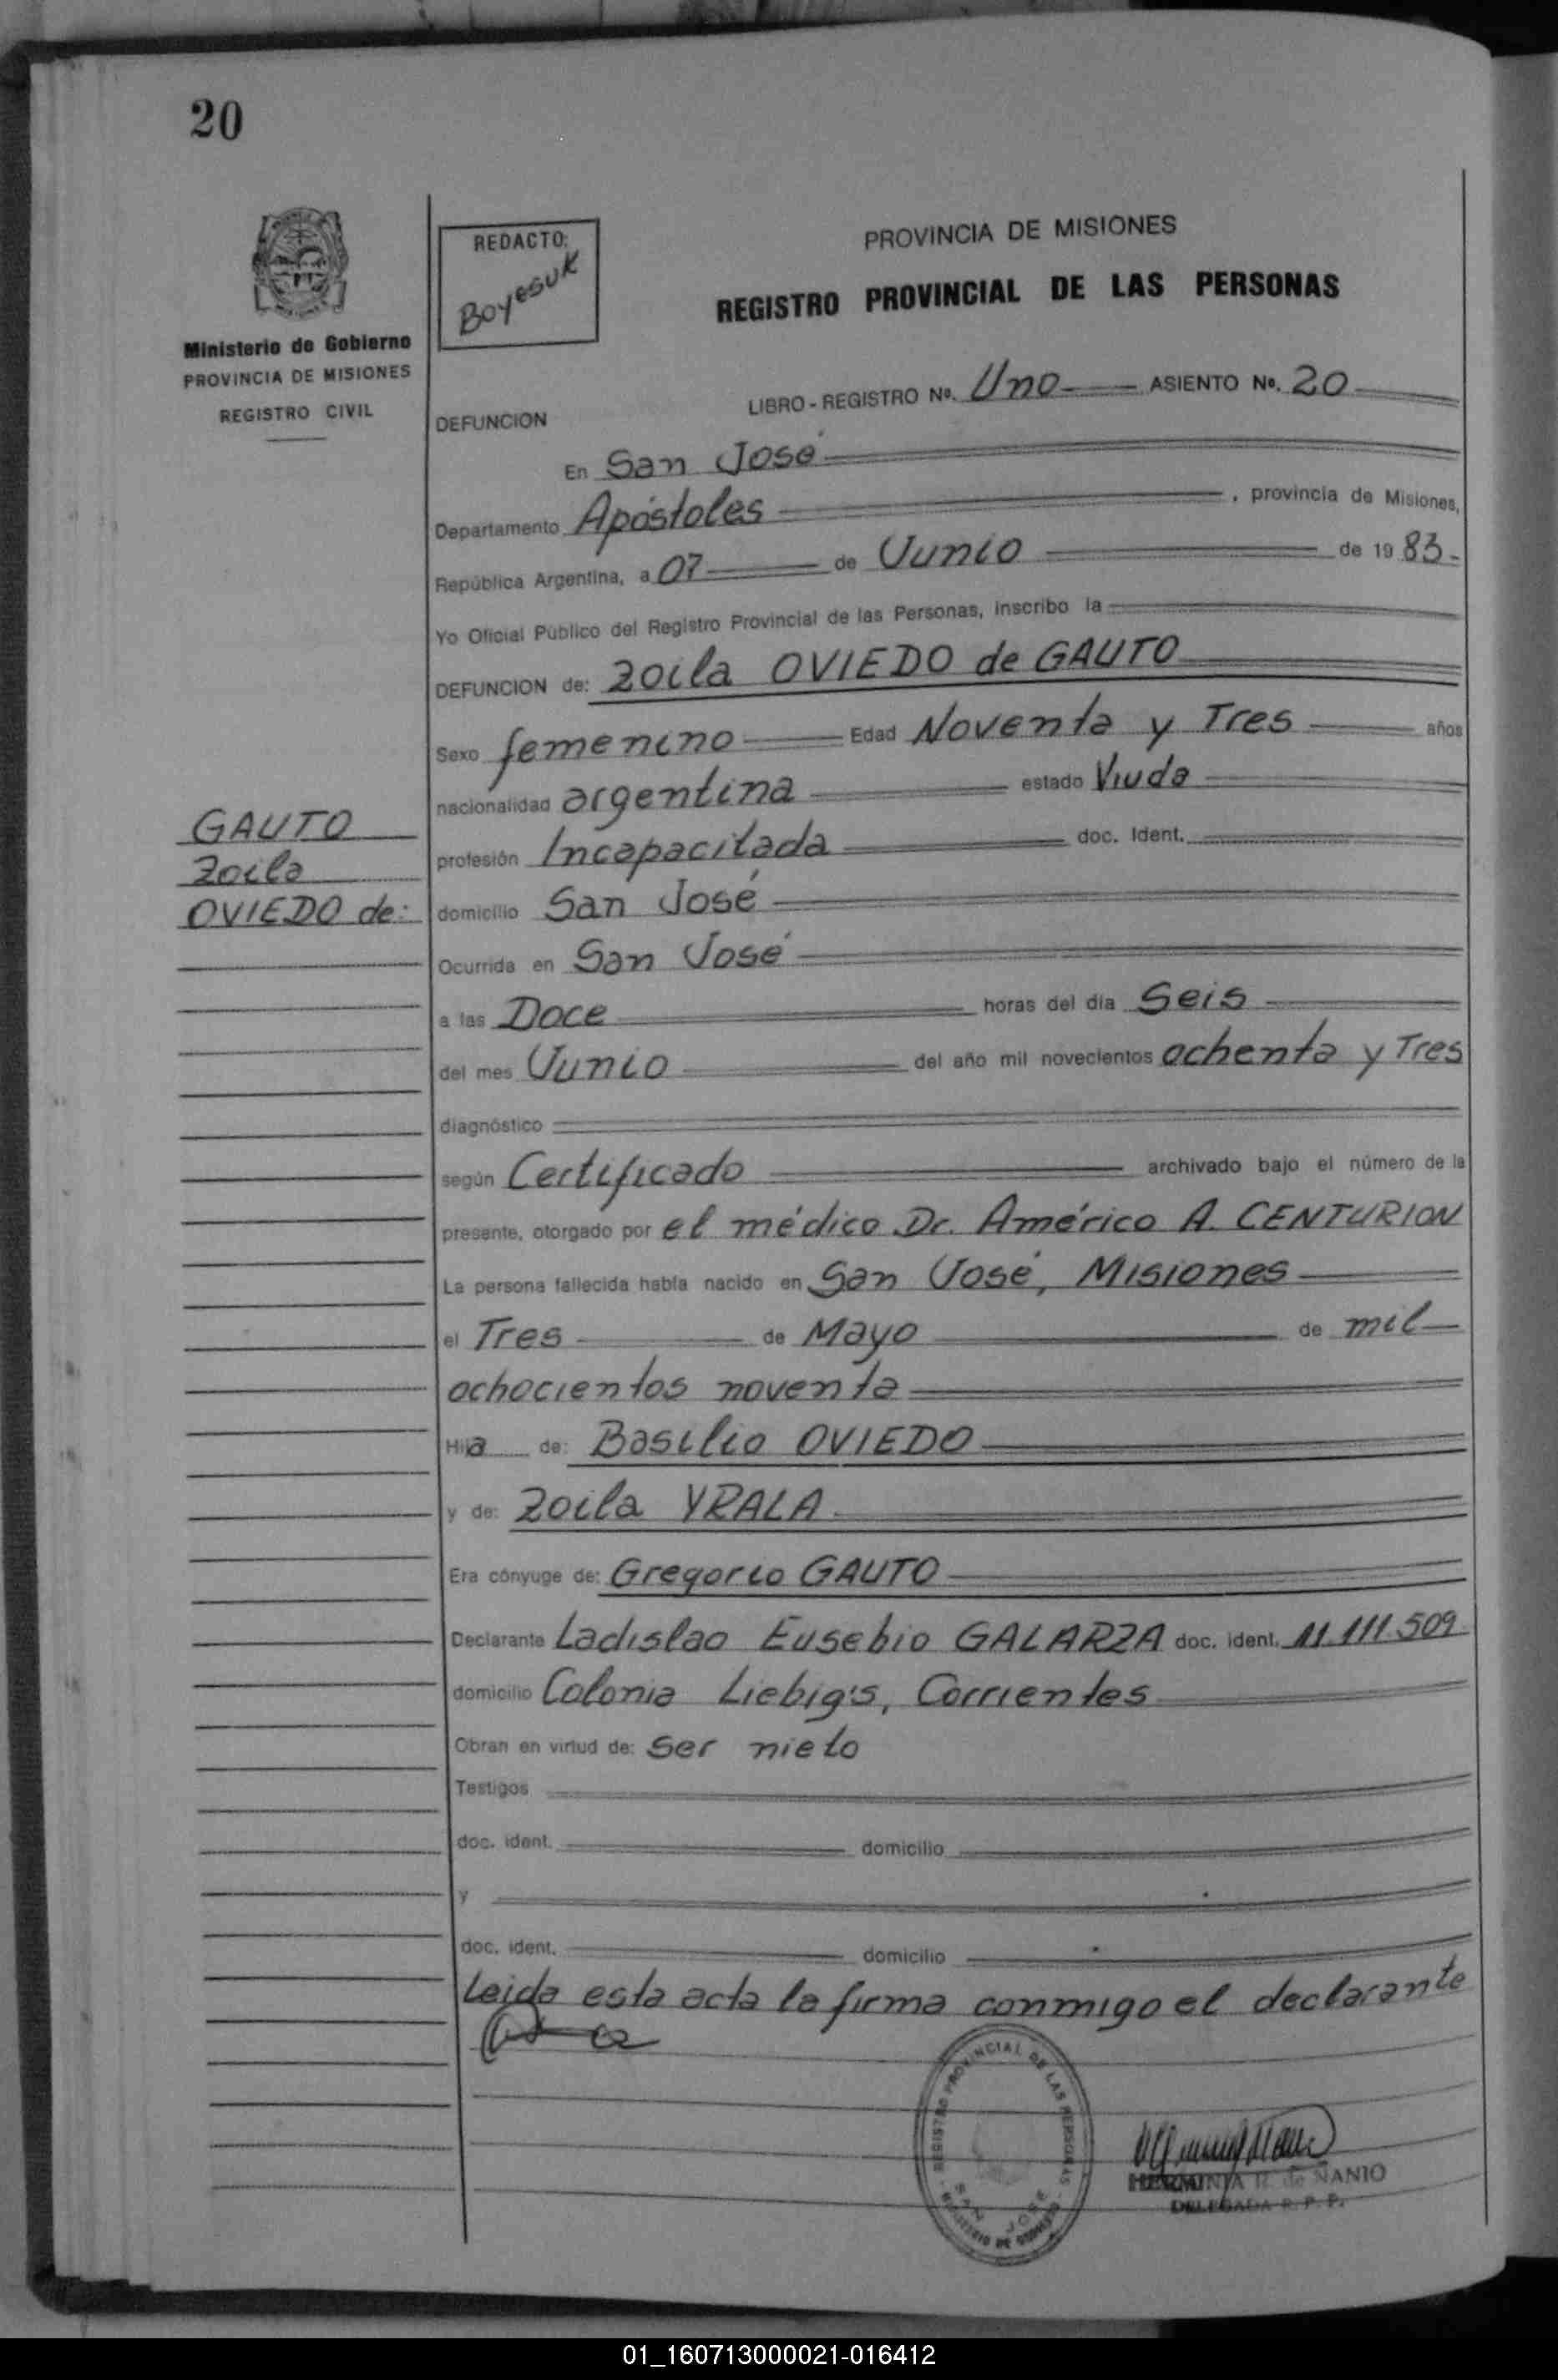 20
Ministerio de Gobierno
PROVINCIA DE MISIONES
REGISTRO CIVIL
REDACTO:
Boyesuk
PROVINCIA DE MISIONES
REGISTRO PROVINCIAL DE LAS PERSONAS
LIBRO - REGISTRO Nº. Uno ASIENTO Nº. 20
DEFUNCION
En San José
Departamento Apóstoles, provincia de Misiones,
República Argentina, a 07 de Junio de 1983
Yo Oficial Público del Registro Provincial de las Personas, inscribo la
DEFUNCION de: Zoila OVIEDO de GAUTO
Sexo femenino Edad Noventa y Tres años
nacionalidad argentina estado Viuda
GAUTO
Zoila
OVIEDO de:
profesión Incapacitada doc. Ident.
domicilio San José
Ocurrida en San José
a las Doce horas del día Seis
del mes Junio del año mil novecientos ochenta y Tres
diagnóstico
según Certificado archivado bajo el número de la
presente, otorgado por el médico Dr. Américo A. CENTURION
La persona fallecida había nacido en San José, Misiones
el Tres de Mayo de mil
ochocientos noventa
Hija de: Basilio OVIEDO
y de: Zoila YRALA
Era cónyuge de: Gregorio GAUTO
Declarante Ladislao Eusebio GALARZA doc. ident. 11.111.509
domicilio Colonia Liebig's, Corrientes
Obran en virtud de: ser nieto
Testigos
doc. ident. domicilio
y
doc. ident. domicilio
Leida esta acta la firma conmigo el declarante
REGISTRO PROVINCIAL DE LAS PERSONAS
SAN JOSE
MINISTERIO DE GOBIERNO
HERMINIA R. de ÑANIO
DELEGADA R. P. P.
01_160713000021-016412